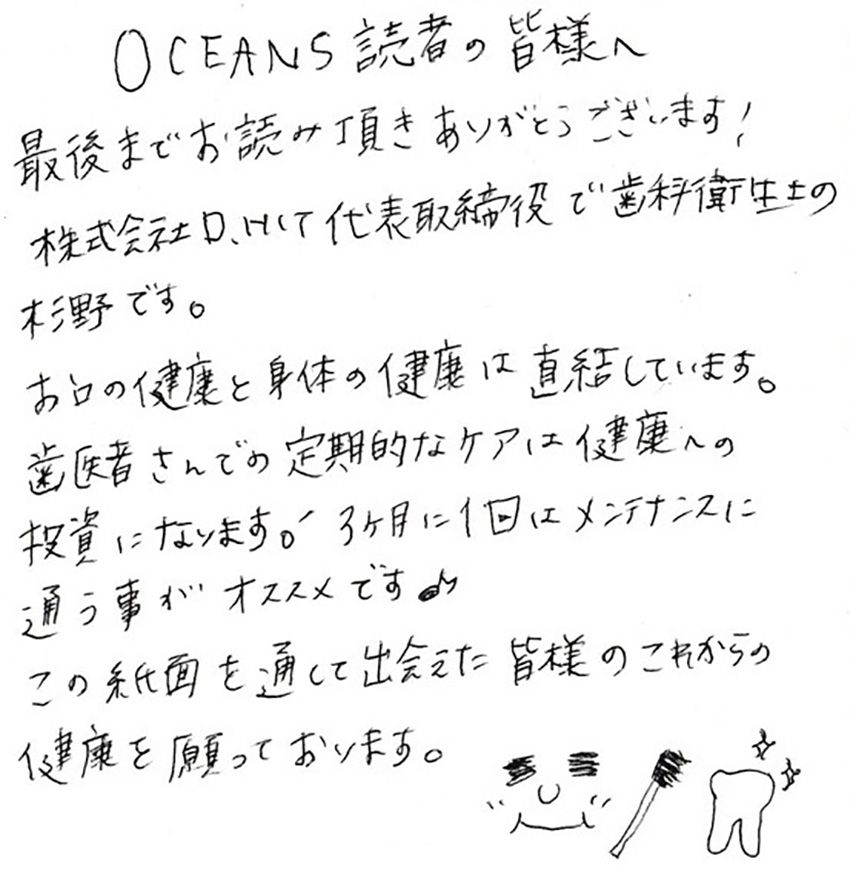 OCEANS読者の皆様へ
最後までお読み頂きありがとうございます!
株式会社D.HIT代表取締役で歯科衛生士の
杉野です。
お口の健康と身体の健康は直結しています。
歯医者さんでの定期的なケアは健康への
投資になります。3ヶ月に1回はメンテナンスに
通う事がオススメです♪
この紙面を通して出会えた皆様のこれからの
健康を願っております。